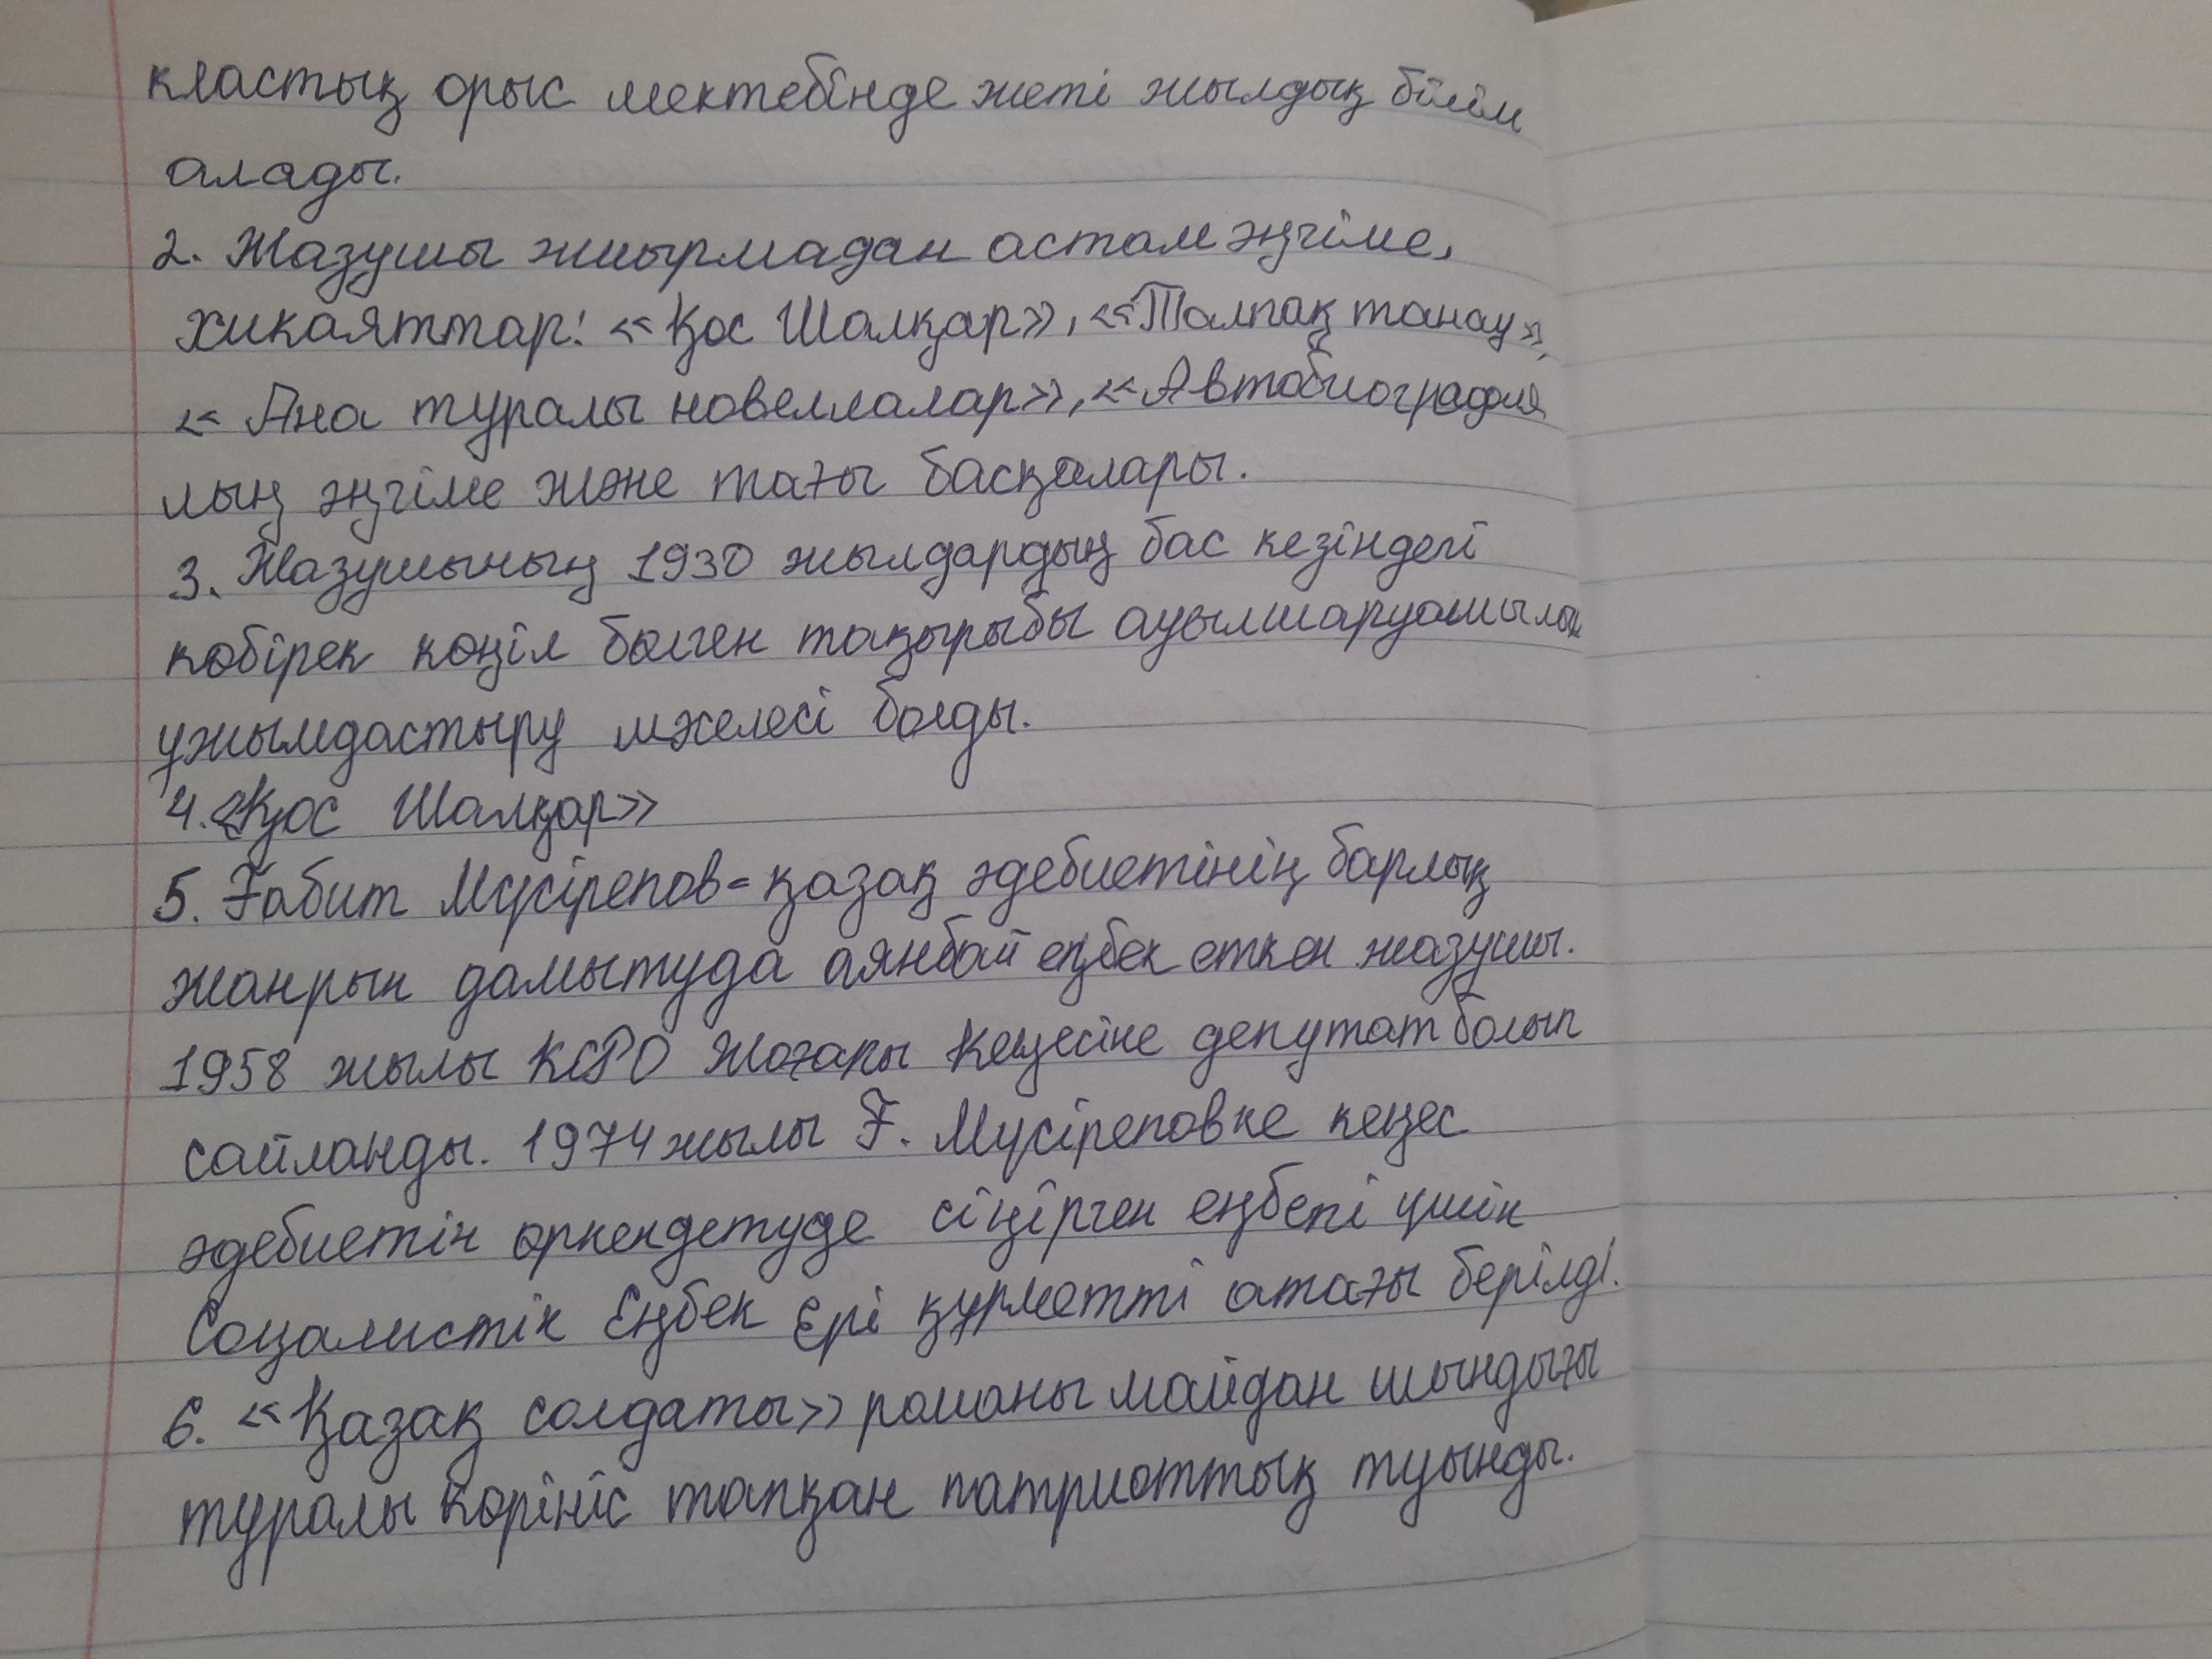 кластық орыс мектебінде жеті жылдық білім
алады.
2. Жазушы жиырмадан астам әңгіме,
хикаяттар: «Қос Шалқар», «Талпақ танау»,
«Ана туралы новеллалар», «Автобиография
лық әңгіме және тағы басқалары.
3. Жазушының 1930 жылдардың бас кезіндегі
көбірек көңіл бөлген тақырыбы ауылшаруашылық
ұжымдастыру мәселесі болды.
4. «Қос Шалқар»
5. Ғабит Мүсірепов - қазақ әдебиетінің барлық
жанрын дамытуда аянбай еңбек еткен жазушы.
1958 жылы КСРО Жоғары Кеңесіне депутат болып
сайланды. 1974 жылы Ғ. Мүсіреповке кеңес
әдебиетін өркендетуде сіңірген еңбегі үшін
Соцалистік Еңбек Ері құрметті атағы берілді.
6. «Қазақ солдаты» романы майдан шындығы
туралы көрініс тапқан патриоттық туынды.